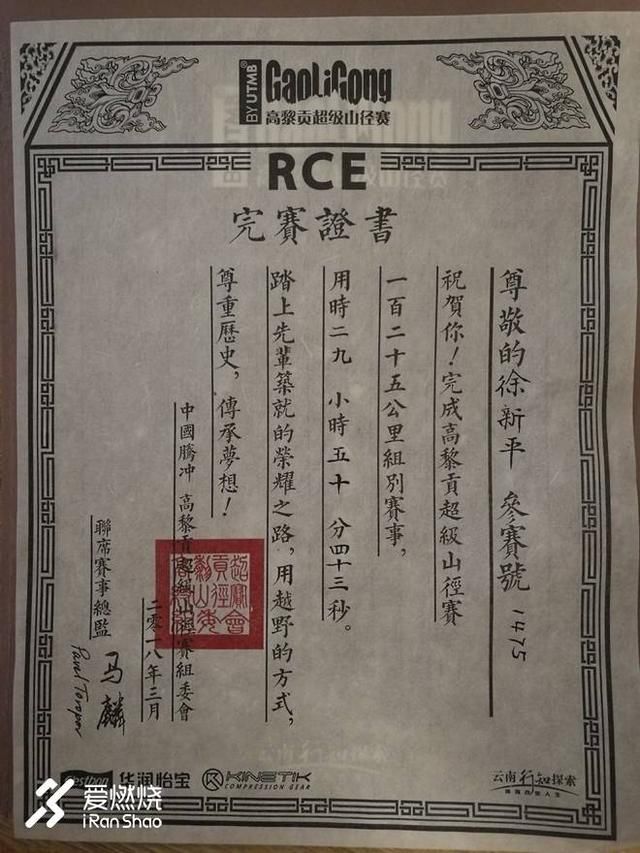 BY UTMB®
GaoLiGong
高黎贡超级山径赛
RCE
完賽證書
尊敬的徐新平 參賽號 1475
祝賀你！完成高黎貢超級山徑賽
一百二十五公里組別賽事，
用時二九 小時五十 分四十三秒。
踏上先輩築就的榮耀之路，用越野的方式，
尊重歷史，傳承夢想！
中國騰冲 高黎貢超級山徑賽組委會
二零一八年三月
聯席賽事總監
马麟
C'estbon 华润怡宝
KINETIK
COMPRESSION GEAR
云南行知探索
爱燃烧
iRanShao